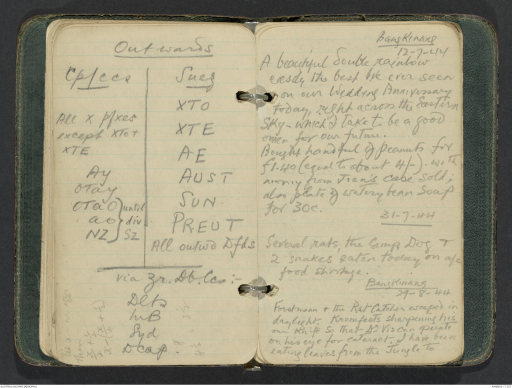 Outwards
Cp/ccs
Sueg
All X p/xes
except XTO +
XTE
Ay
OTAY
OTAO
AO
NZ
until
div
SZ
XTO
XTE
AE
AUST
SUN
PREUT
All outwd D/hs
via Zr. Db. Ccs :-
Dlts
Syd
Dcap
Bangkinang
12-7-44
A beautiful double rainbow
easily the best I've ever seen
on our Wedding Anniversary
Today, right across the Eastern
Sky - which I take to be a good
omen for our future.
Bought handful of peanuts for
f1.40 (equal to about 4/-) with
money from Jean's case sold;
also plate of watery bean soup
for 30c.
31-7-44
Several rats, the Camp Dog +
2 snakes eaten today on a/c
food shortage.
Bangkinang
29-8-44
+ the Rat Catcher escaped in
daylight. sharpening his
own knife so that Dr operate
on his eye for cataract. I have been
eating leaves from the Jungle to